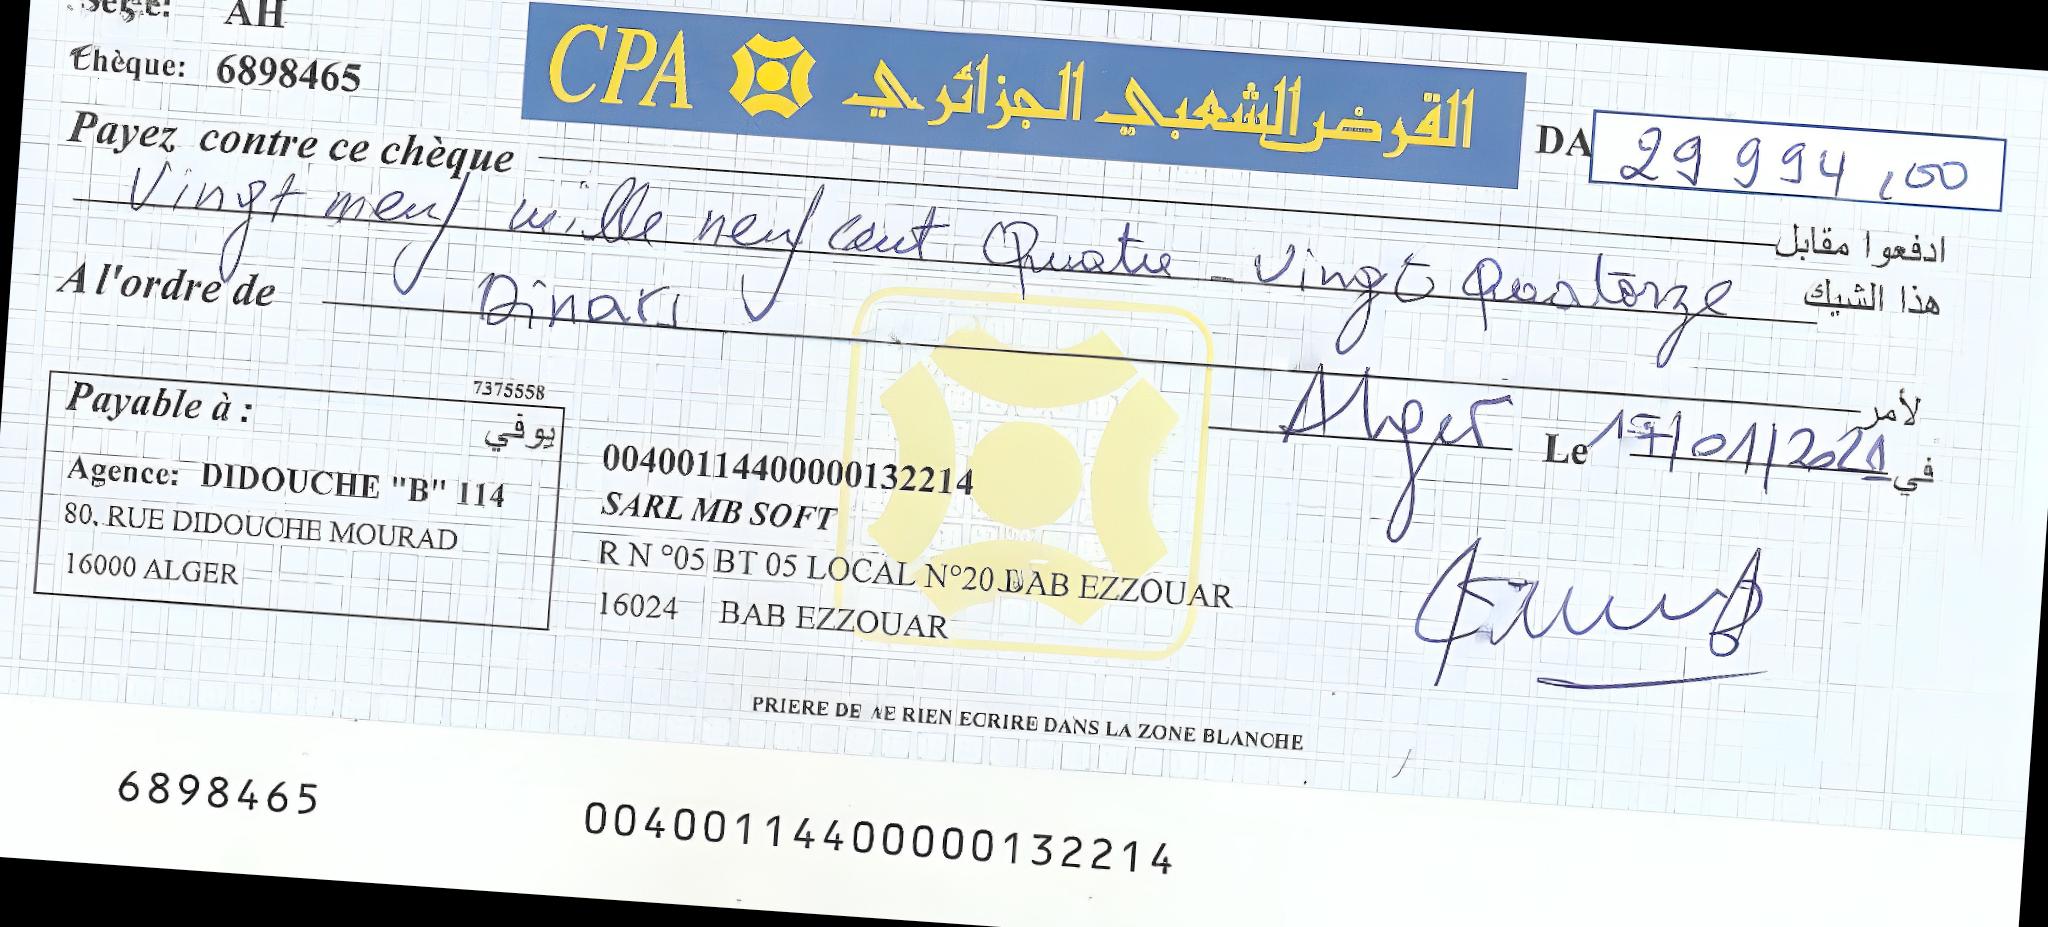 Série: AH
Chèque: 6898465
CPA القرض الشعبي الجزائري
DA 29 994,00
Payez contre ce chèque
ادفعوا مقابل
Vingt neuf mille neuf cent Quatre-vingt Quatorze
هذا الشيك
A l'ordre de
Dinars
لأمر
Alger Le 17/01/2021 في
Payable à :
7375558
يوفي
Agence: DIDOUCHE "B" 114
80, RUE DIDOUCHE MOURAD
16000 ALGER
00400114400000132214
SARL MB SOFT
R N °05 BT 05 LOCAL N°20 BAB EZZOUAR
16024 BAB EZZOUAR
PRIERE DE NE RIEN ECRIRE DANS LA ZONE BLANCHE
6898465
00400114400000132214